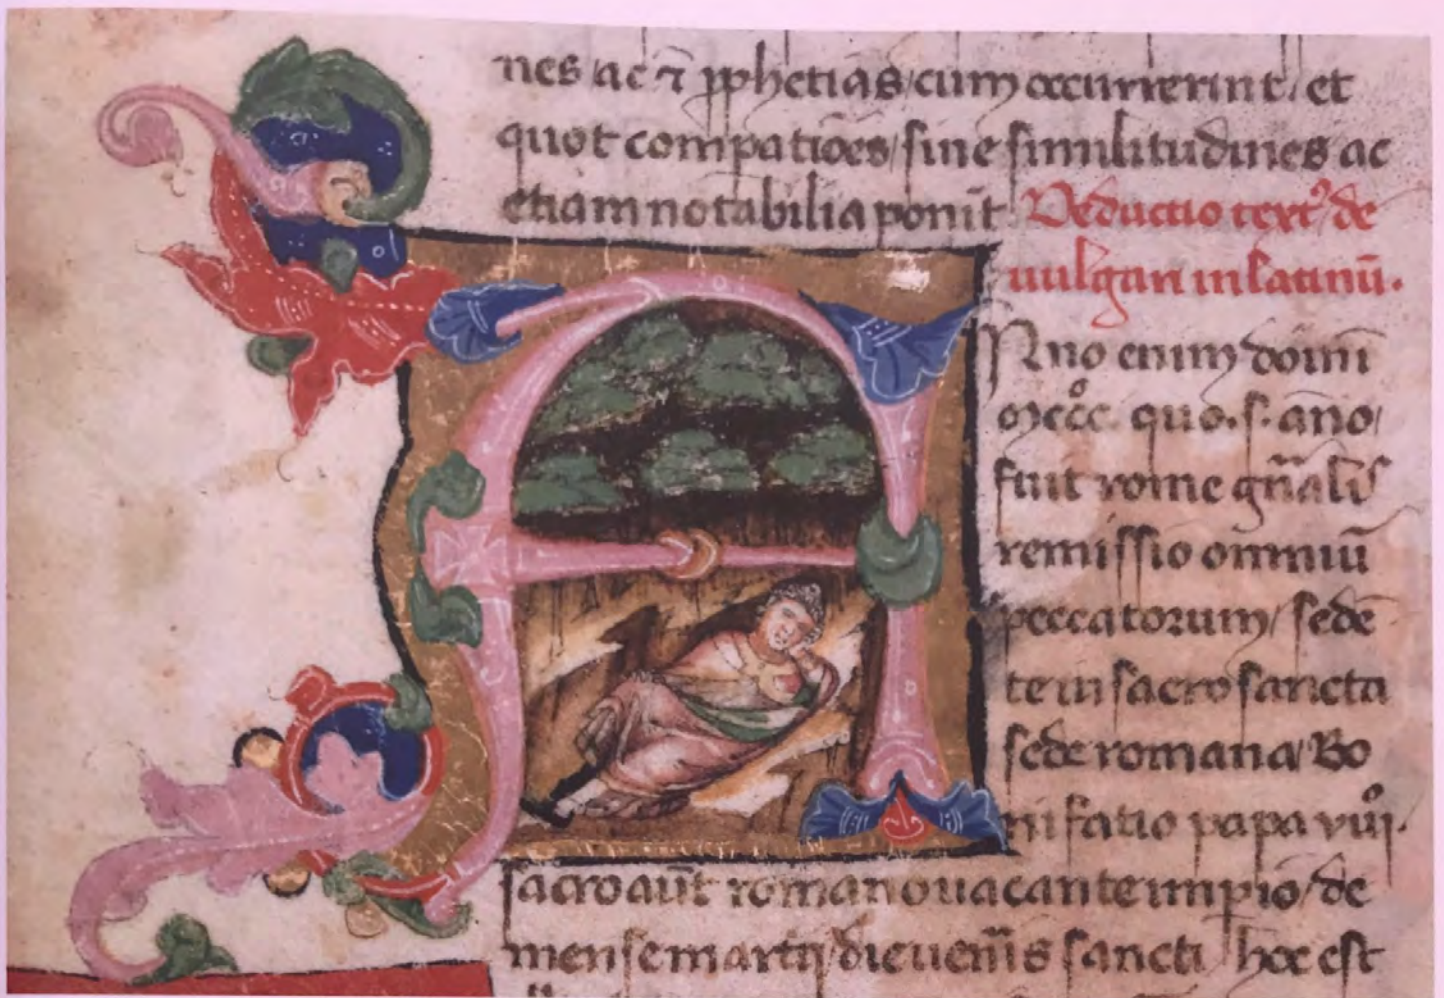 nes ac ⁊ ꝓphetias cum occurrerint / et
quot compatiōes / sine similitudines ac
etiam notabilia ponūt Deductio text᷒ de
uulgari in latinū.
Anno enim dom̄i
mccc̊. quo. s. anno /
fuit rome gn̄alis
remissio omniū
peccatorum / sedē
te in sacro sancta
sede romana Bo
nifatio papa viijº.
sacro aūt romano uacante impio / de
mense martij die uen̄is sancti hoc est